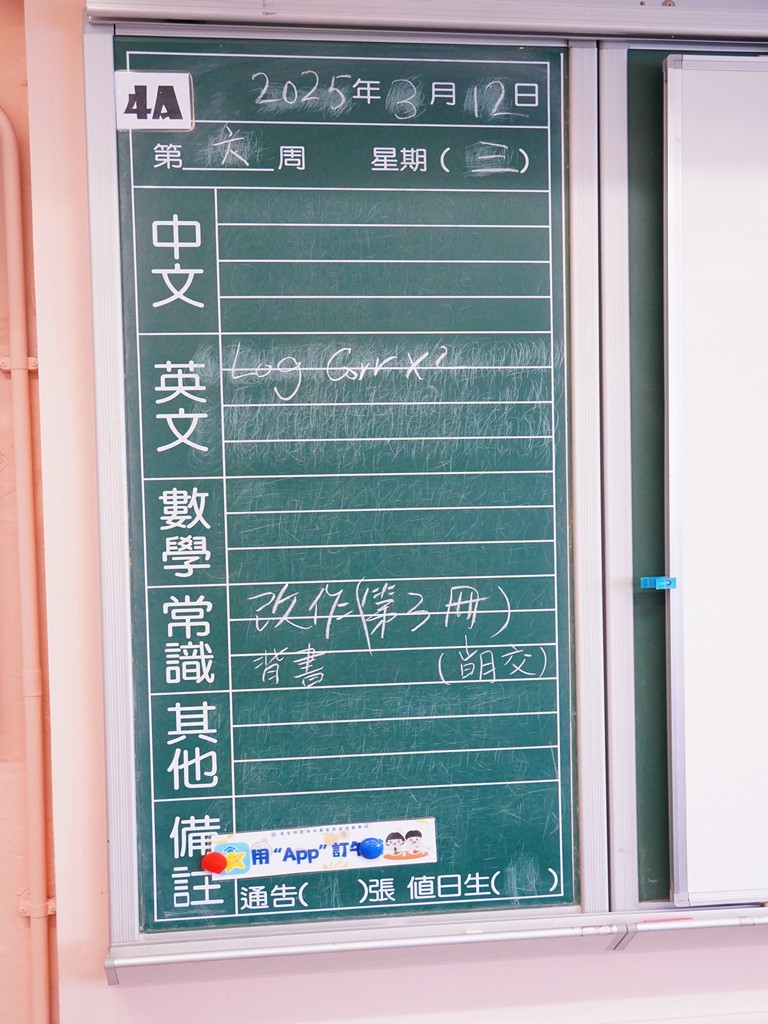 4A
2025年3月12日
第六周 星期(三)
中文
英文
Log Corr x2
數學
常識
改作(第3冊)
背書 (朝交)
其他
備註
用“App”訂午
通告( )張 值日生( )